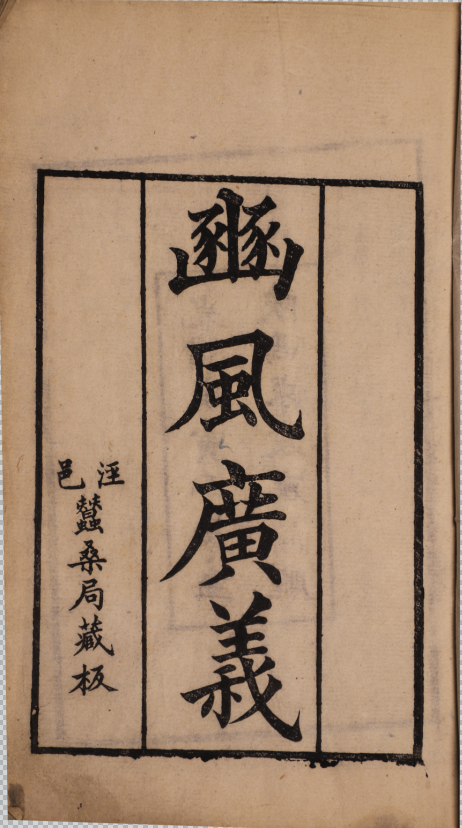 豳風廣義
涇邑蠶桑局藏板